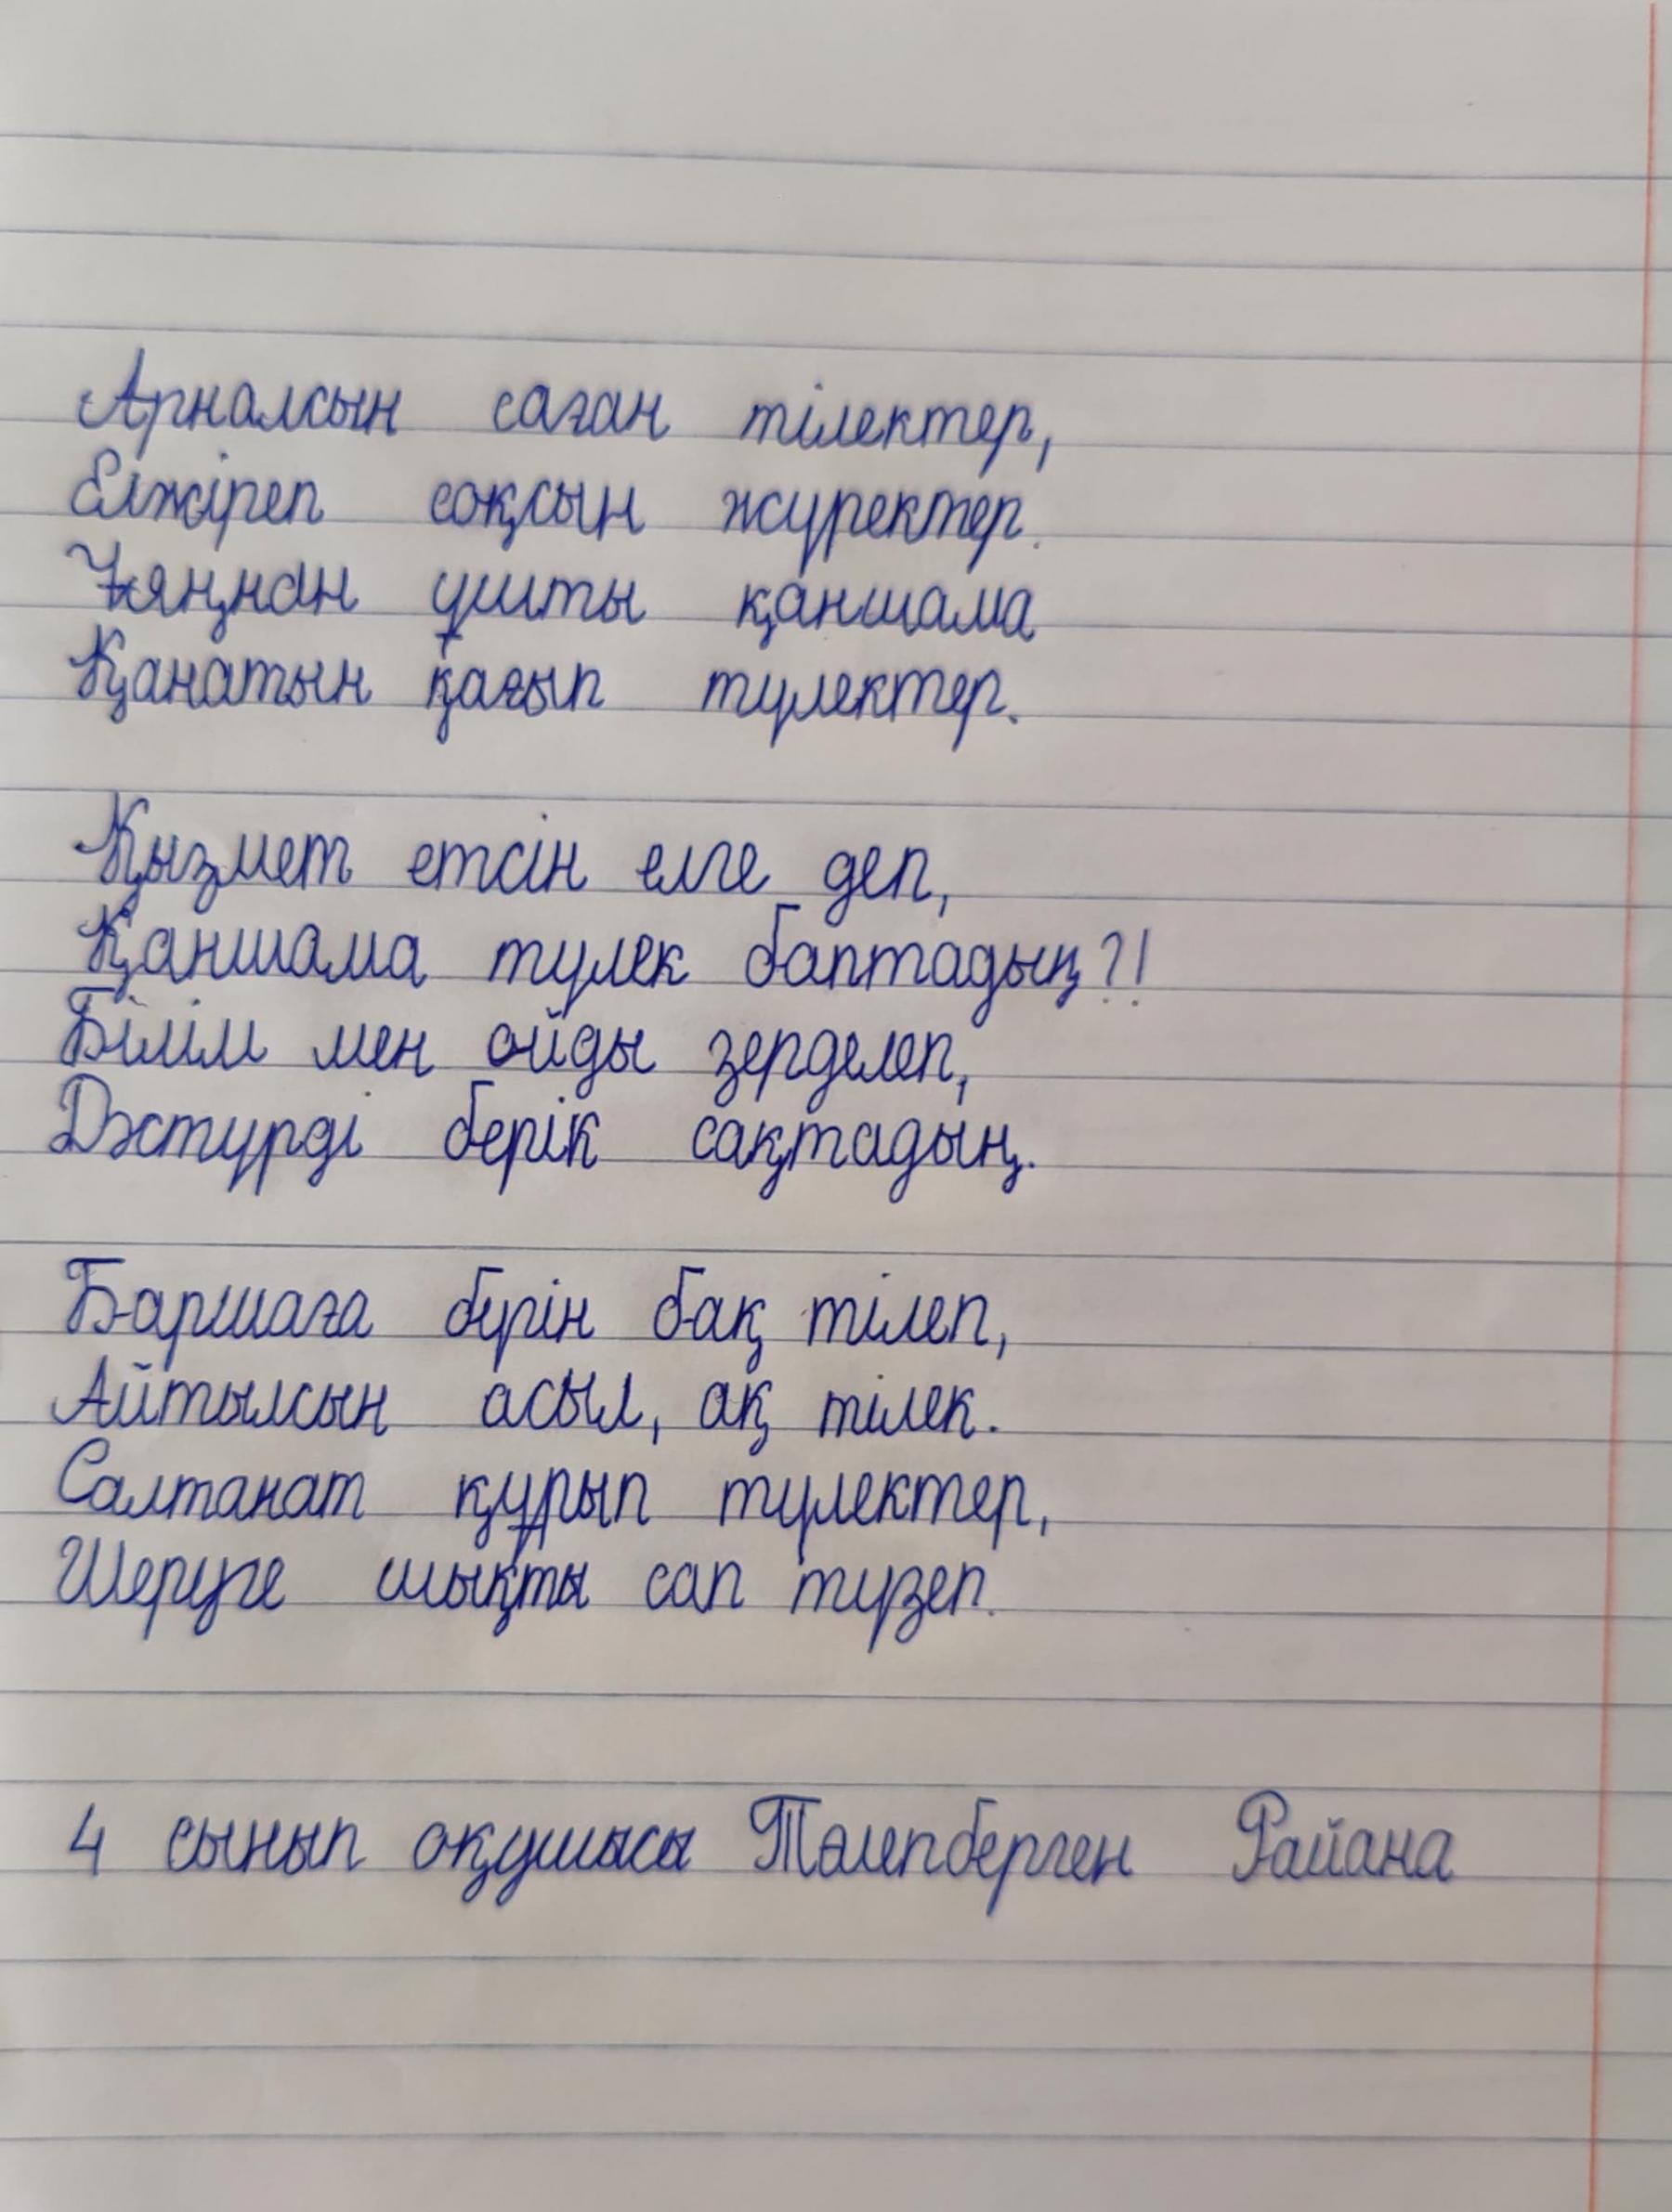 Арналсын саған тілектер,
Елжіреп соқсын жүректер.
Ұяңнан ұшты қаншама
Қанатын қағып түлектер.
Қызмет етсін елге деп,
Қаншама түлек баптадың?!
Білім мен ойды зерделеп,
Дәстүрді берік сақтадың.
Баршаға бүгін бақ тілеп,
Айтылсын асыл, ақ тілек.
Салтанат құрып түлектер,
Шеруге шықты сап түзеп.
4 сынып оқушысы Төлепберген Райана